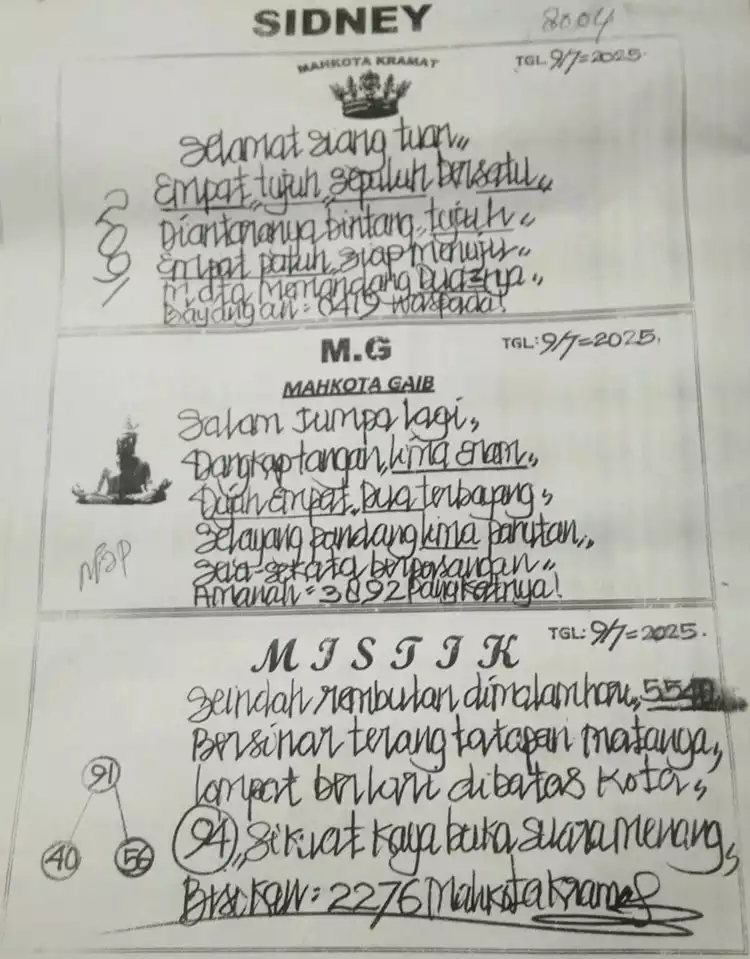 SIDNEY
8004
MAHKOTA KRAMAT
TGL. 9/7=2025.
Selamat siang tuan,,
Empat, tujuh, sepuluh bersatu,,
Diantaranya bintang, tujuh,,
Empat patuh, siap menuju,,
Mata memandang
Bayangan = 0419 waspada!
M.G
TGL: 9/7=2025,
MAHKOTA GAIB
Salam jumpa lagi,
tangan, lima enam,,
Tujuh empat, dua terbayang,
Selayang pandang lima
Seia-sekata
Amanah = 3892
MISTIK
TGL: 9/7=2025.
Seindah rembulan dimalam hari, 554
Bersinar terang tatapan matanya,
Lompat berlari dibatas kota,
91
40
56
94,, Sikuat kaya buka suara menang,
Bisikan: 2276 Mahkota Kramat